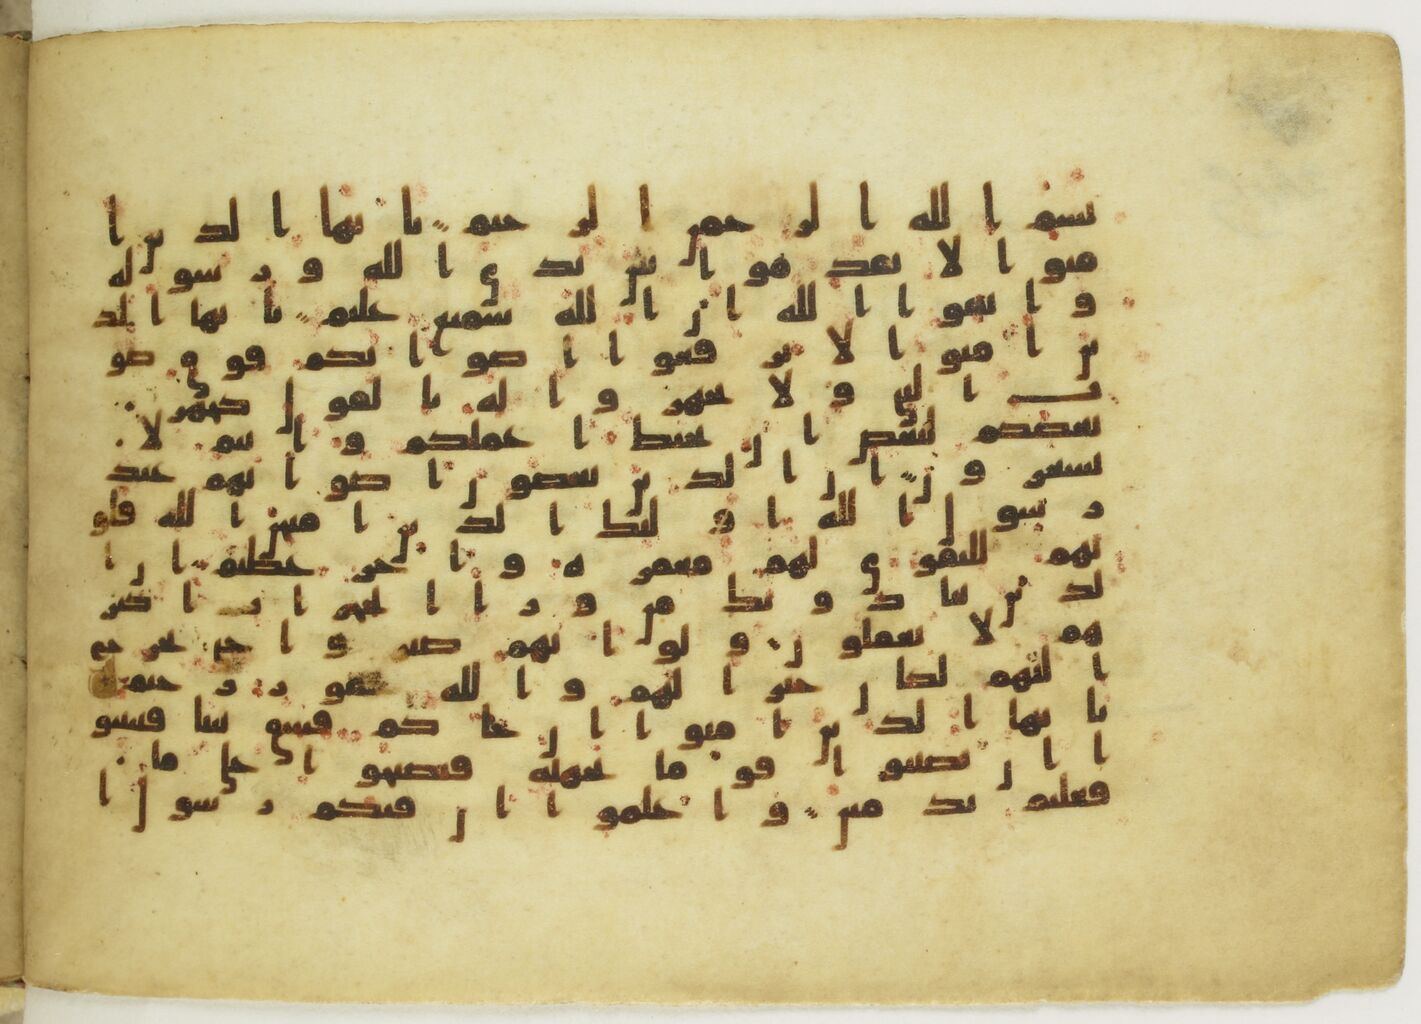 بسم الله الرحمن الرحيم يايها الذين ا
منوا لا تقدموا بين يدي الله ورسوله
واتقوا الله ان الله سميع عليم يايها الذ
ين امنوا لا ترفعوا اصواتكم فوق صو
ت النبي ولا تجهروا له بالقول كجهر
بعضكم لبعض ان تحبط اعملكم وانتم لا
تشعرون ان الذين يغضون اصواتهم عند
رسول الله اولئك الذين امتحن الله قلو
بهم للتقوى لهم مغفرة واجر عظيم ان ا
لذين ينادونك من ورا الحجرات اكثر
هم لا يعقلون ولو انهم صبروا حتى تخرج
اليهم لكان خيرا لهم والله غفور رحيم
يايها الذين امنوا ان جاكم فسق بنبا فتبينو
ا ان تصيبوا قوما بجهلة فتصبحوا على ما
فعلتم ندمين واعلموا ان فيكم رسول ا